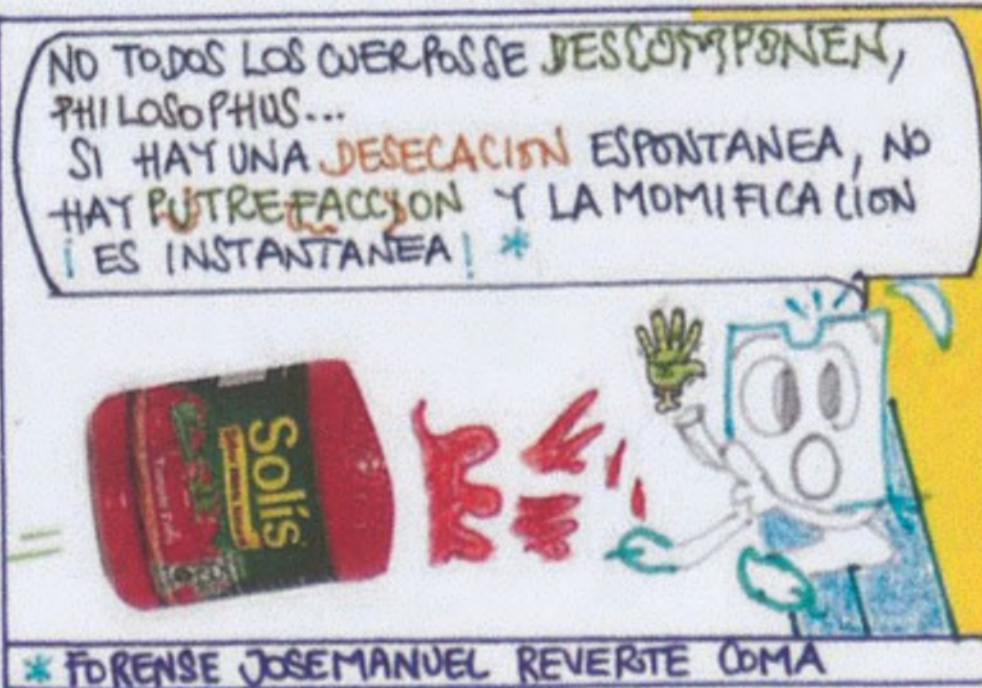 NO TODOS LOS CUERPOS SE DESCOMPONEN,
PHILOSOPHUS...
SI HAY UNA DESECACION ESPONTANEA, NO
HAY PUTREFACCION Y LA MOMIFICACION
¡ES INSTANTANEA! *
Solís
* FORENSE JOSEMANUEL REVERTE COMA